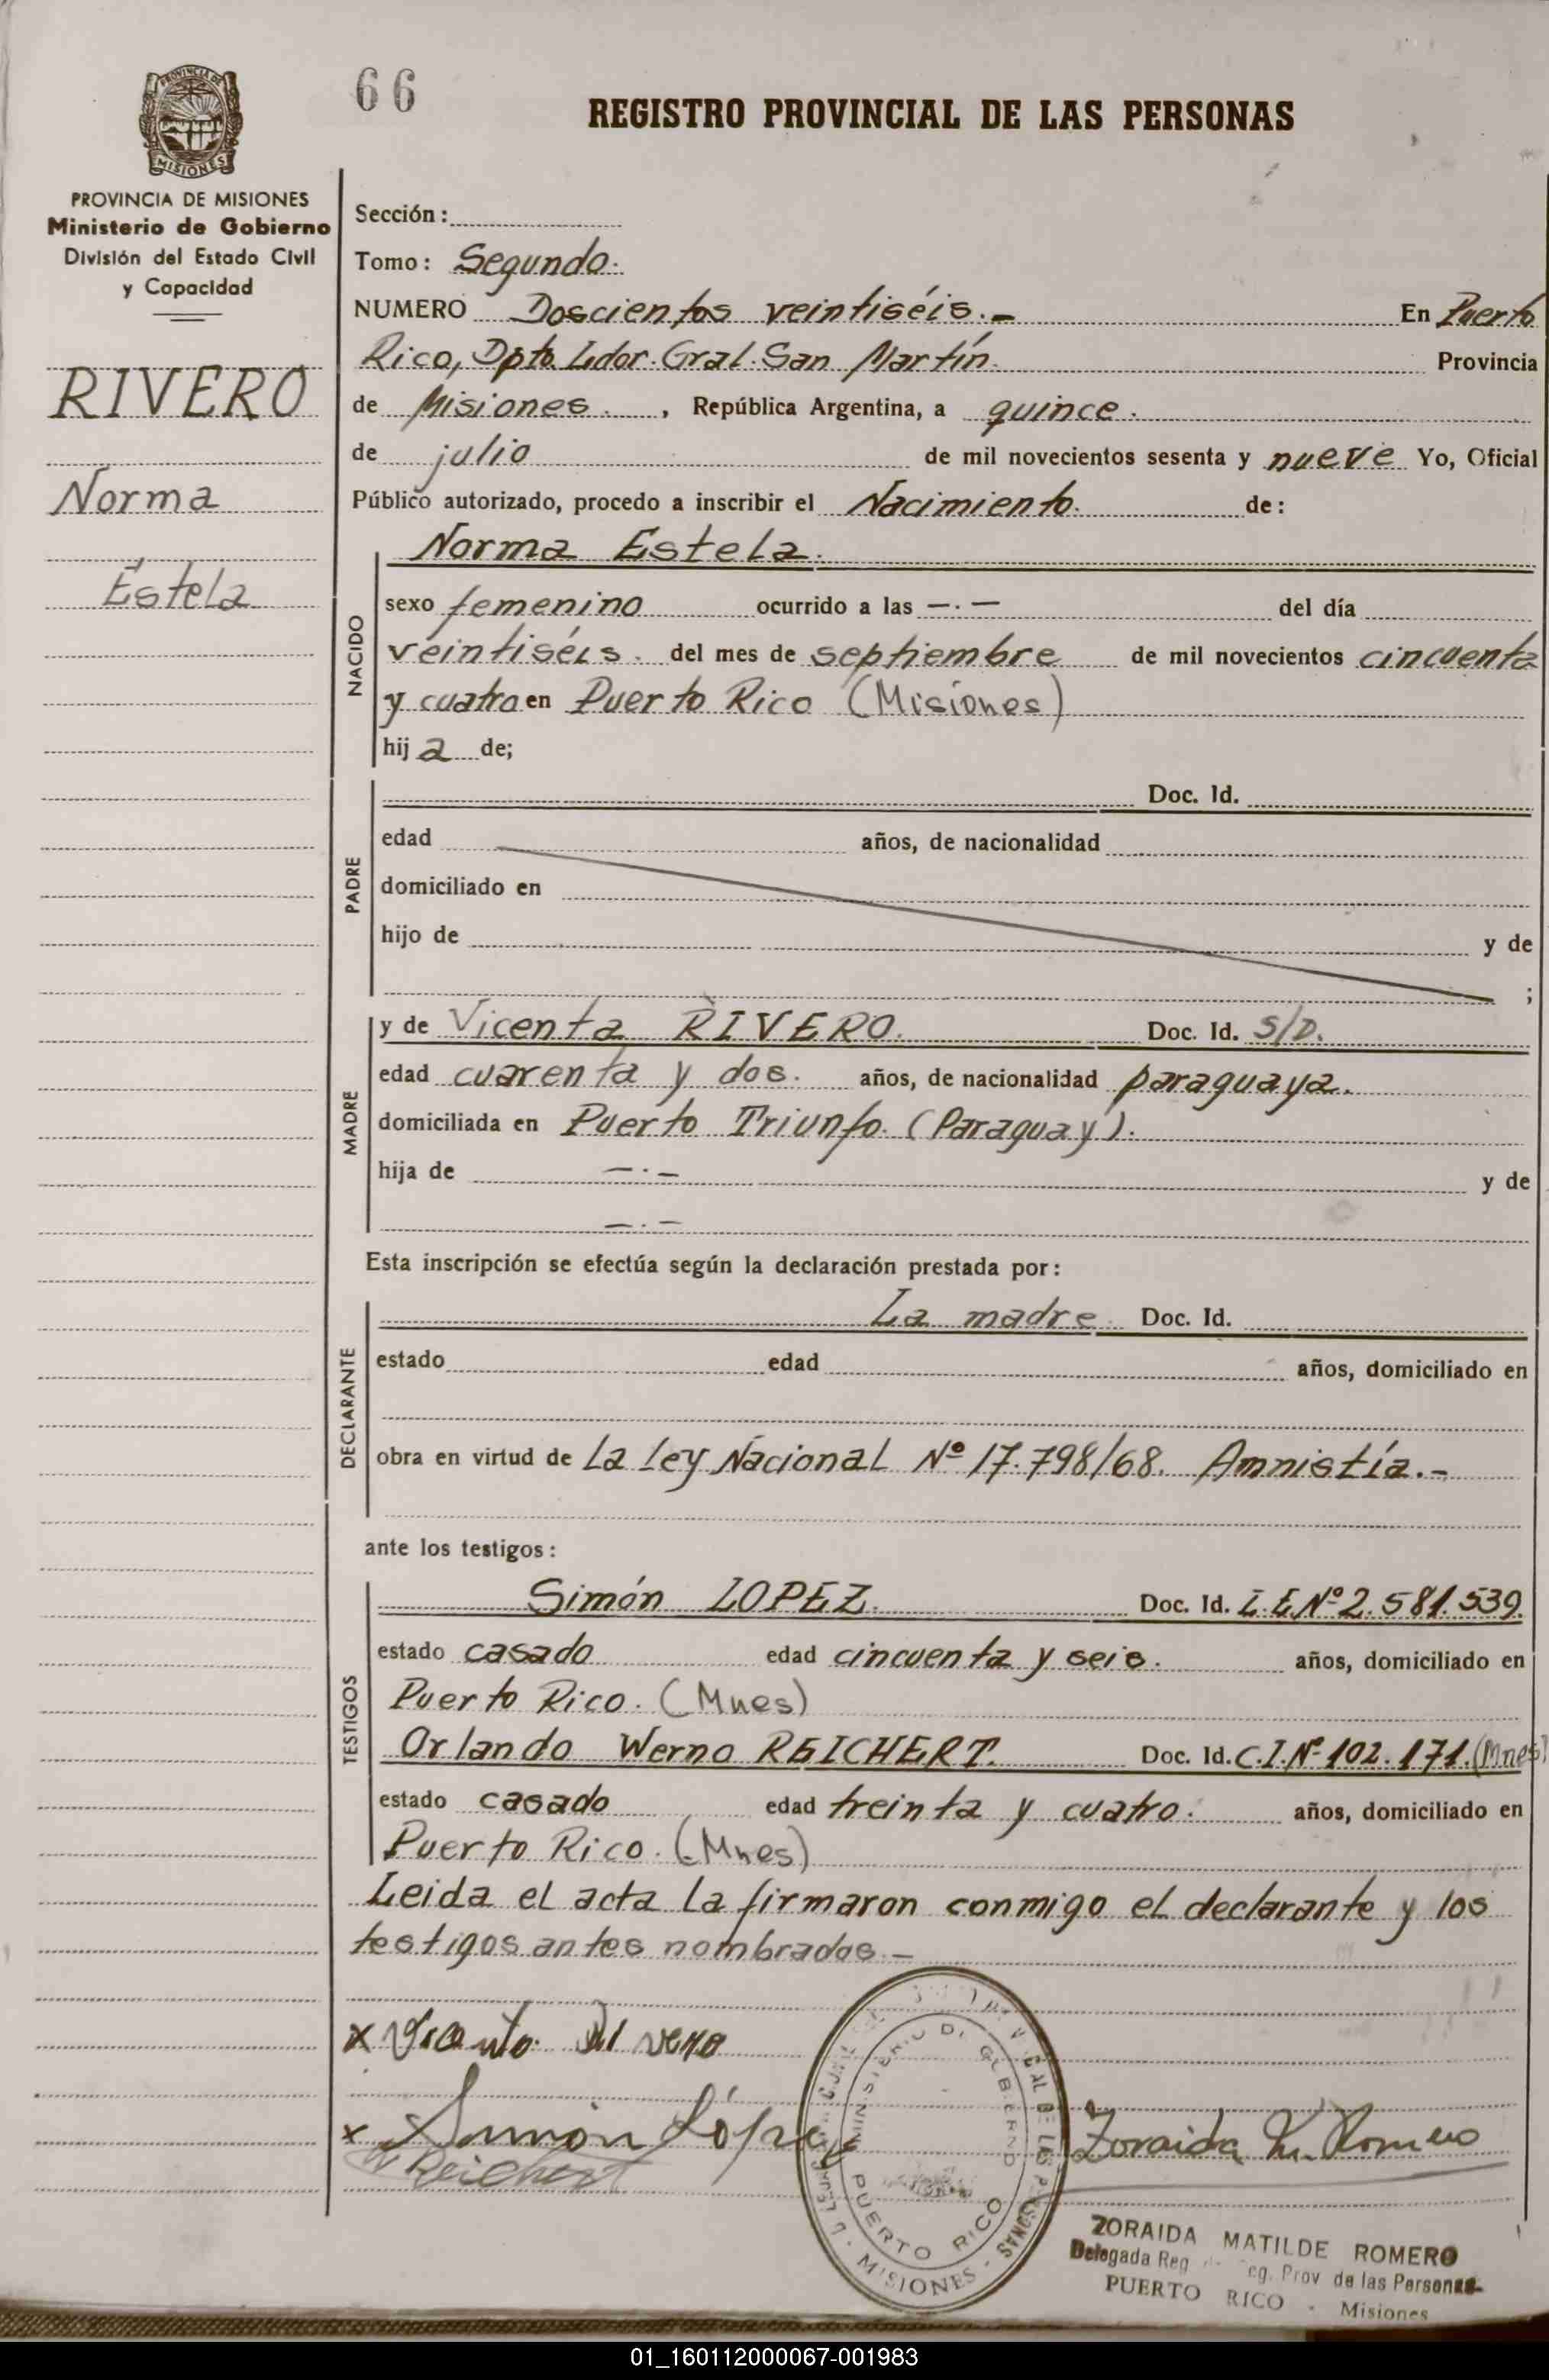 66
REGISTRO PROVINCIAL DE LAS PERSONAS
PROVINCIA DE
MISIONES
PROVINCIA DE MISIONES
Ministerio de Gobierno
División del Estado Civil
y Capacidad
RIVERO
Norma
Estela
Sección:
Tomo: Segundo.
NUMERO Doscientos veintiséis.- En Puerto
Rico, Dpto. Ldor. Gral. San Martín. Provincia
de Misiones. , República Argentina, a quince.
de julio de mil novecientos sesenta y nueve Yo, Oficial
Público autorizado, procedo a inscribir el Nacimiento. de:
NACIDO
Norma Estela.
sexo femenino ocurrido a las —.— del día
veintiséis. del mes de septiembre de mil novecientos cincuenta
y cuatro en Puerto Rico (Misiones)
hija de;
PADRE
Doc. Id.
edad años, de nacionalidad
domiciliado en
hijo de y de
;
MADRE
y de Vicenta RIVERO. Doc. Id. S/D.
edad cuarenta y dos. años, de nacionalidad paraguaya.
domiciliada en Puerto Triunfo. (Paraguay).
hija de —.— y de
—.—
Esta inscripción se efectúa según la declaración prestada por:
DECLARANTE
La madre. Doc. Id.
estado edad años, domiciliado en
obra en virtud de La Ley Nacional Nº 17.798/68. Amnistía.-
ante los testigos:
TESTIGOS
Simón LOPEZ. Doc. Id. L.E.Nº 2.581.539.
estado casado edad cincuenta y seis. años, domiciliado en
Puerto Rico. (Mnes)
Orlando Werno REICHERT. Doc. Id. C.I.Nº 102.171. (Mnes)
estado casado edad treinta y cuatro. años, domiciliado en
Puerto Rico. (Mnes)
Leida el acta la firmaron conmigo el declarante y los
testigos antes nombrados.-
x Vicenta Rivero
x Simón López
Reichert
Zoraida M. Romero
MINISTERIO DE GOBIERNO
PUERTO RICO
MISIONES
ZORAIDA MATILDE ROMERO
Delegada Reg. Prov de las Personas
PUERTO RICO - Misiones
01_160112000067-001983